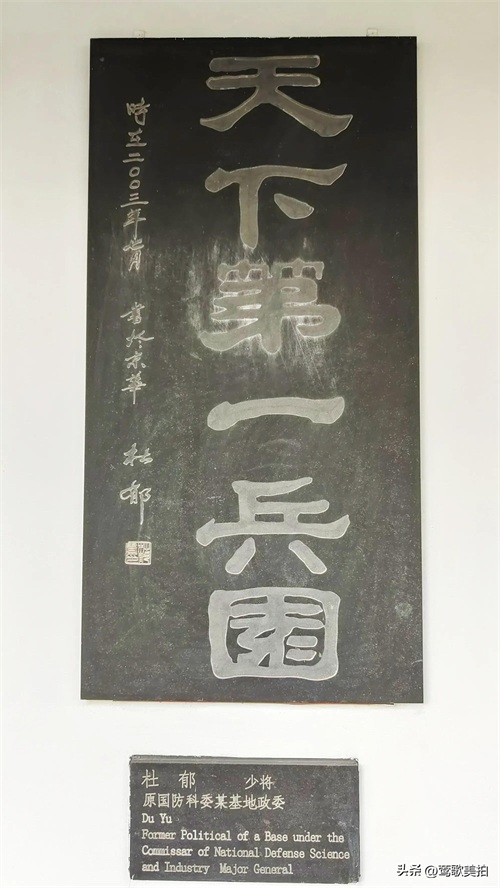 天下第一兵園
時在二〇〇三年七月 書於京華 杜郁
杜 郁 少将
原国防科委某基地政委
Du Yu
Former Political of a Base under the
Commissar of National Defense Science
and Industry Major General
头条 @莺歌美拍